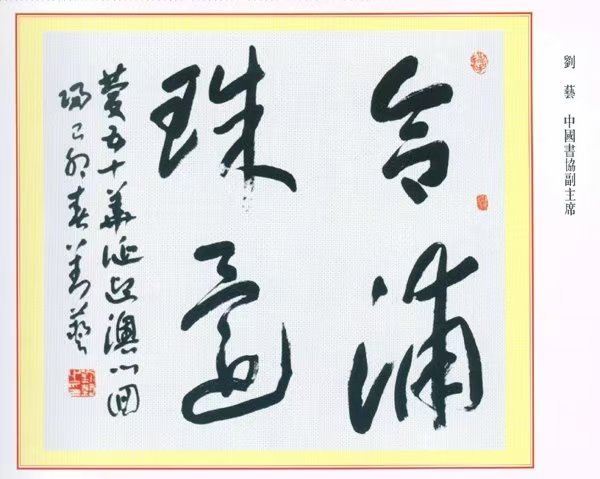 合浦
珠還
慶五十華誕迎澳門回
歸己卯春劉藝
劉藝 中國書協副主席